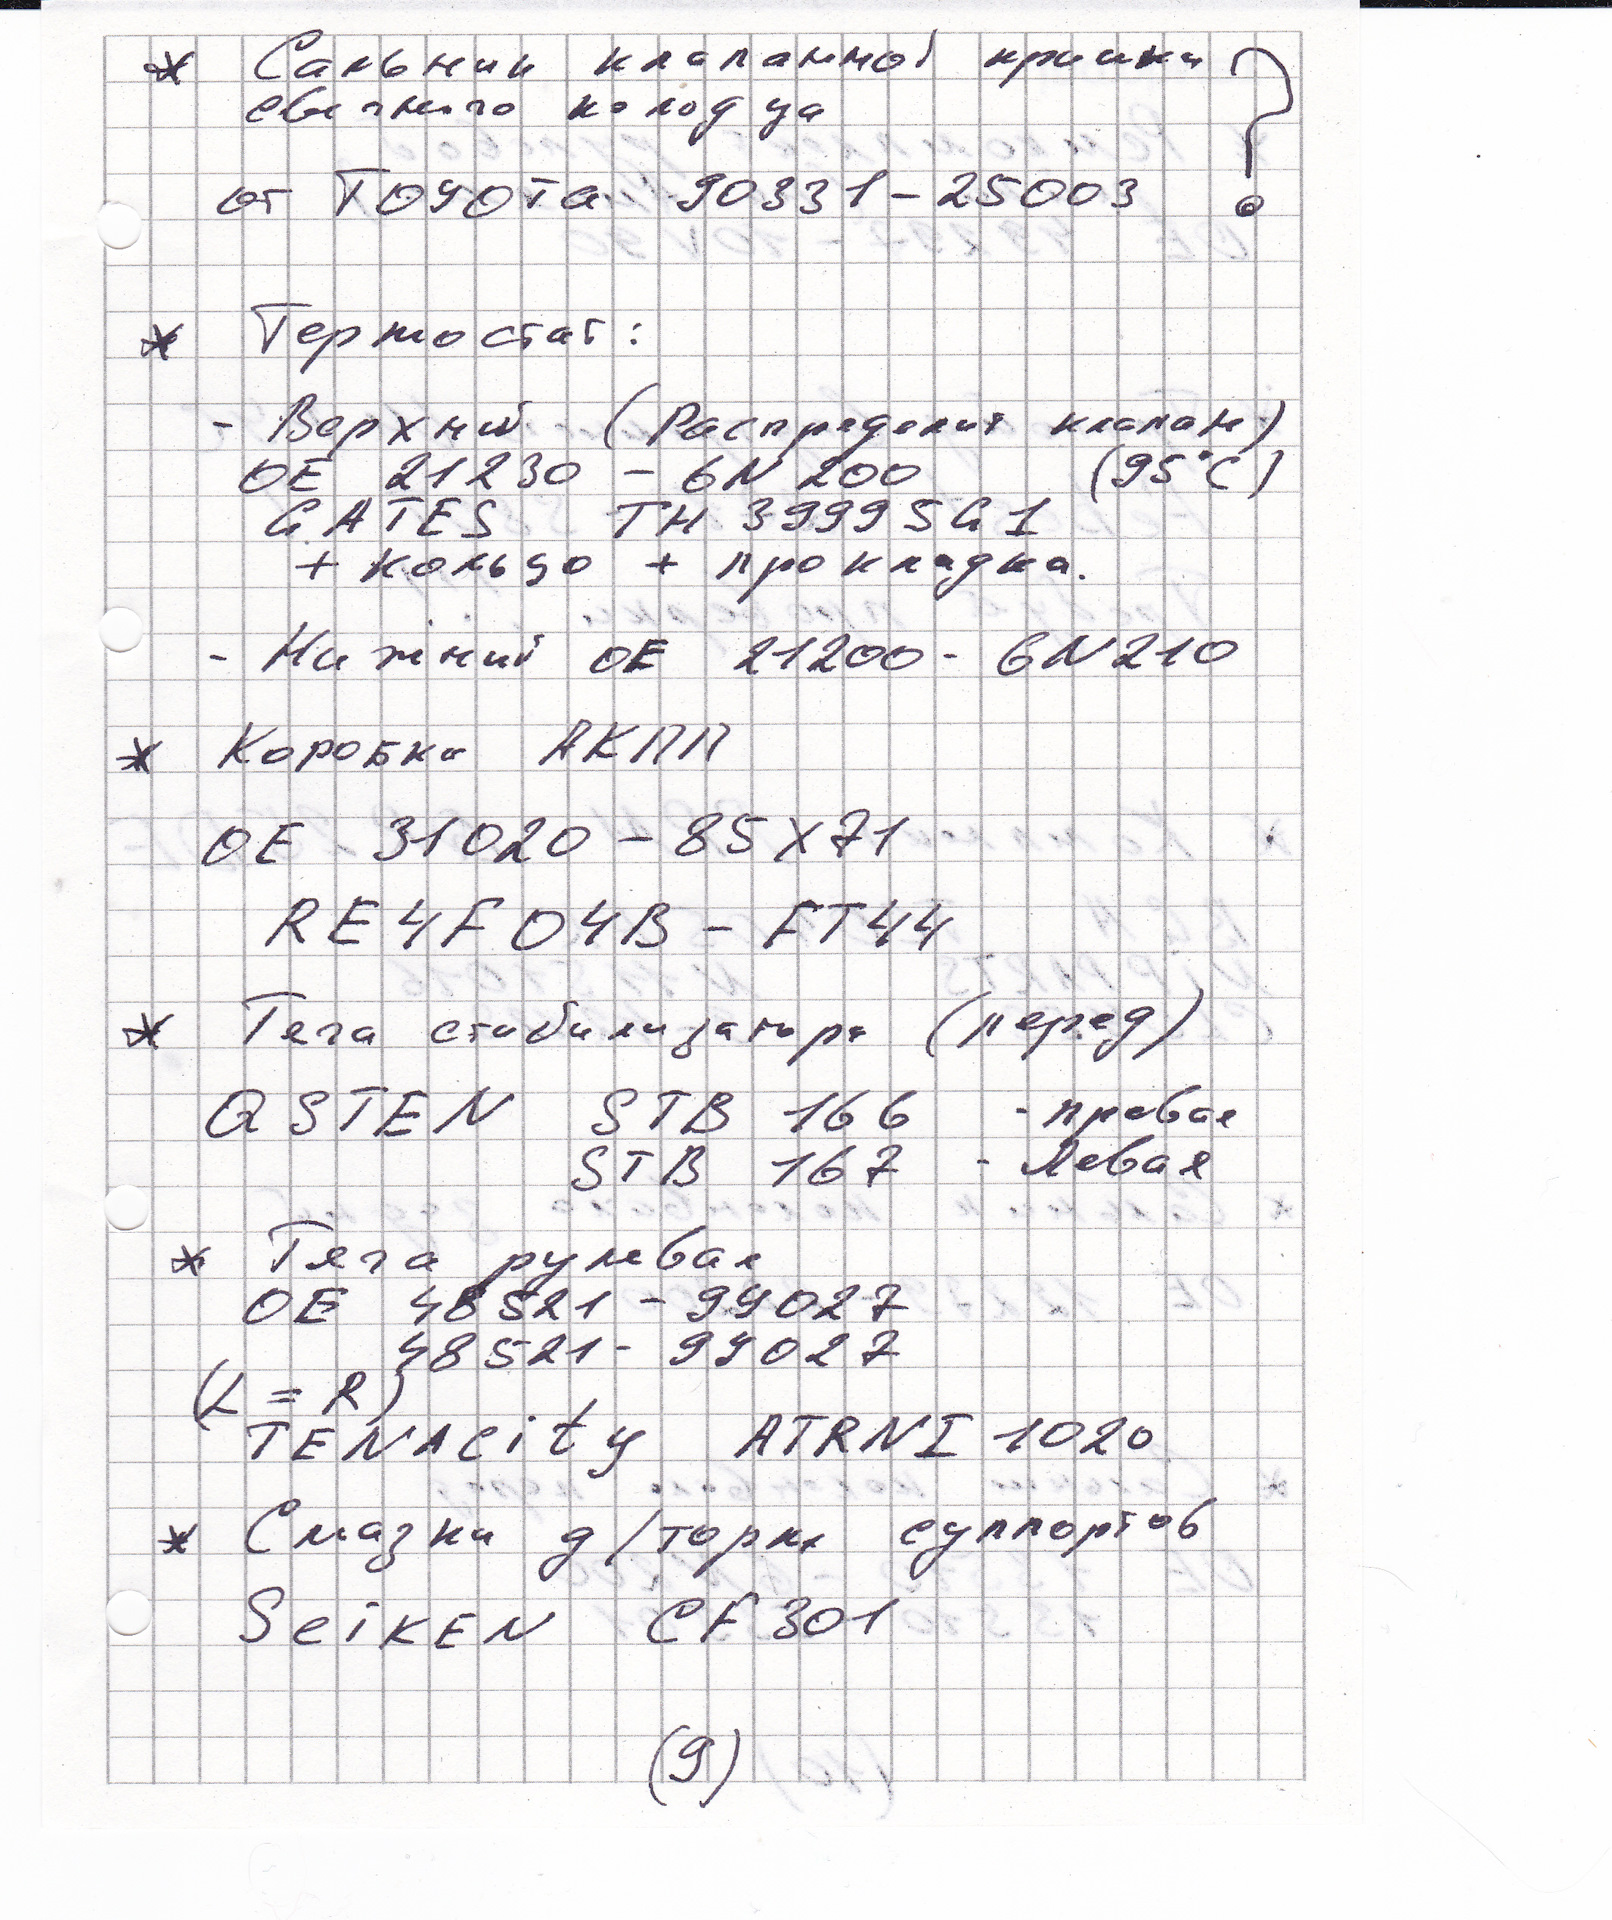 * Сальник клапанной крышки ?
свечного колодца
от TOYOTA 90331-25003
* Термостат:
- Верхний (Распределит клапан)
OE 21230 - 6N200 (95°C)
GATES TH39995G1
+ кольцо + прокладка.
- Нижний OE 21200 - 6N210
* Коробка АКПП
OE 31020 - 85X71
RE4F04B - FT44
* Тяга стабилизатора (перед)
QSTEN STB 166 - правая
STB 167 - левая
* Тяга рулевая
OE 48521 - 99027
48521 - 99027
(L = R)
TENACity ATRNI 1020
* Смазка д/торм суппортов
SeiKEN CF301
(9)